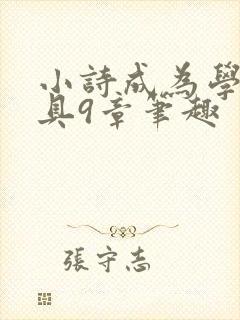 小詩成為學
具9章筆趣
張守志